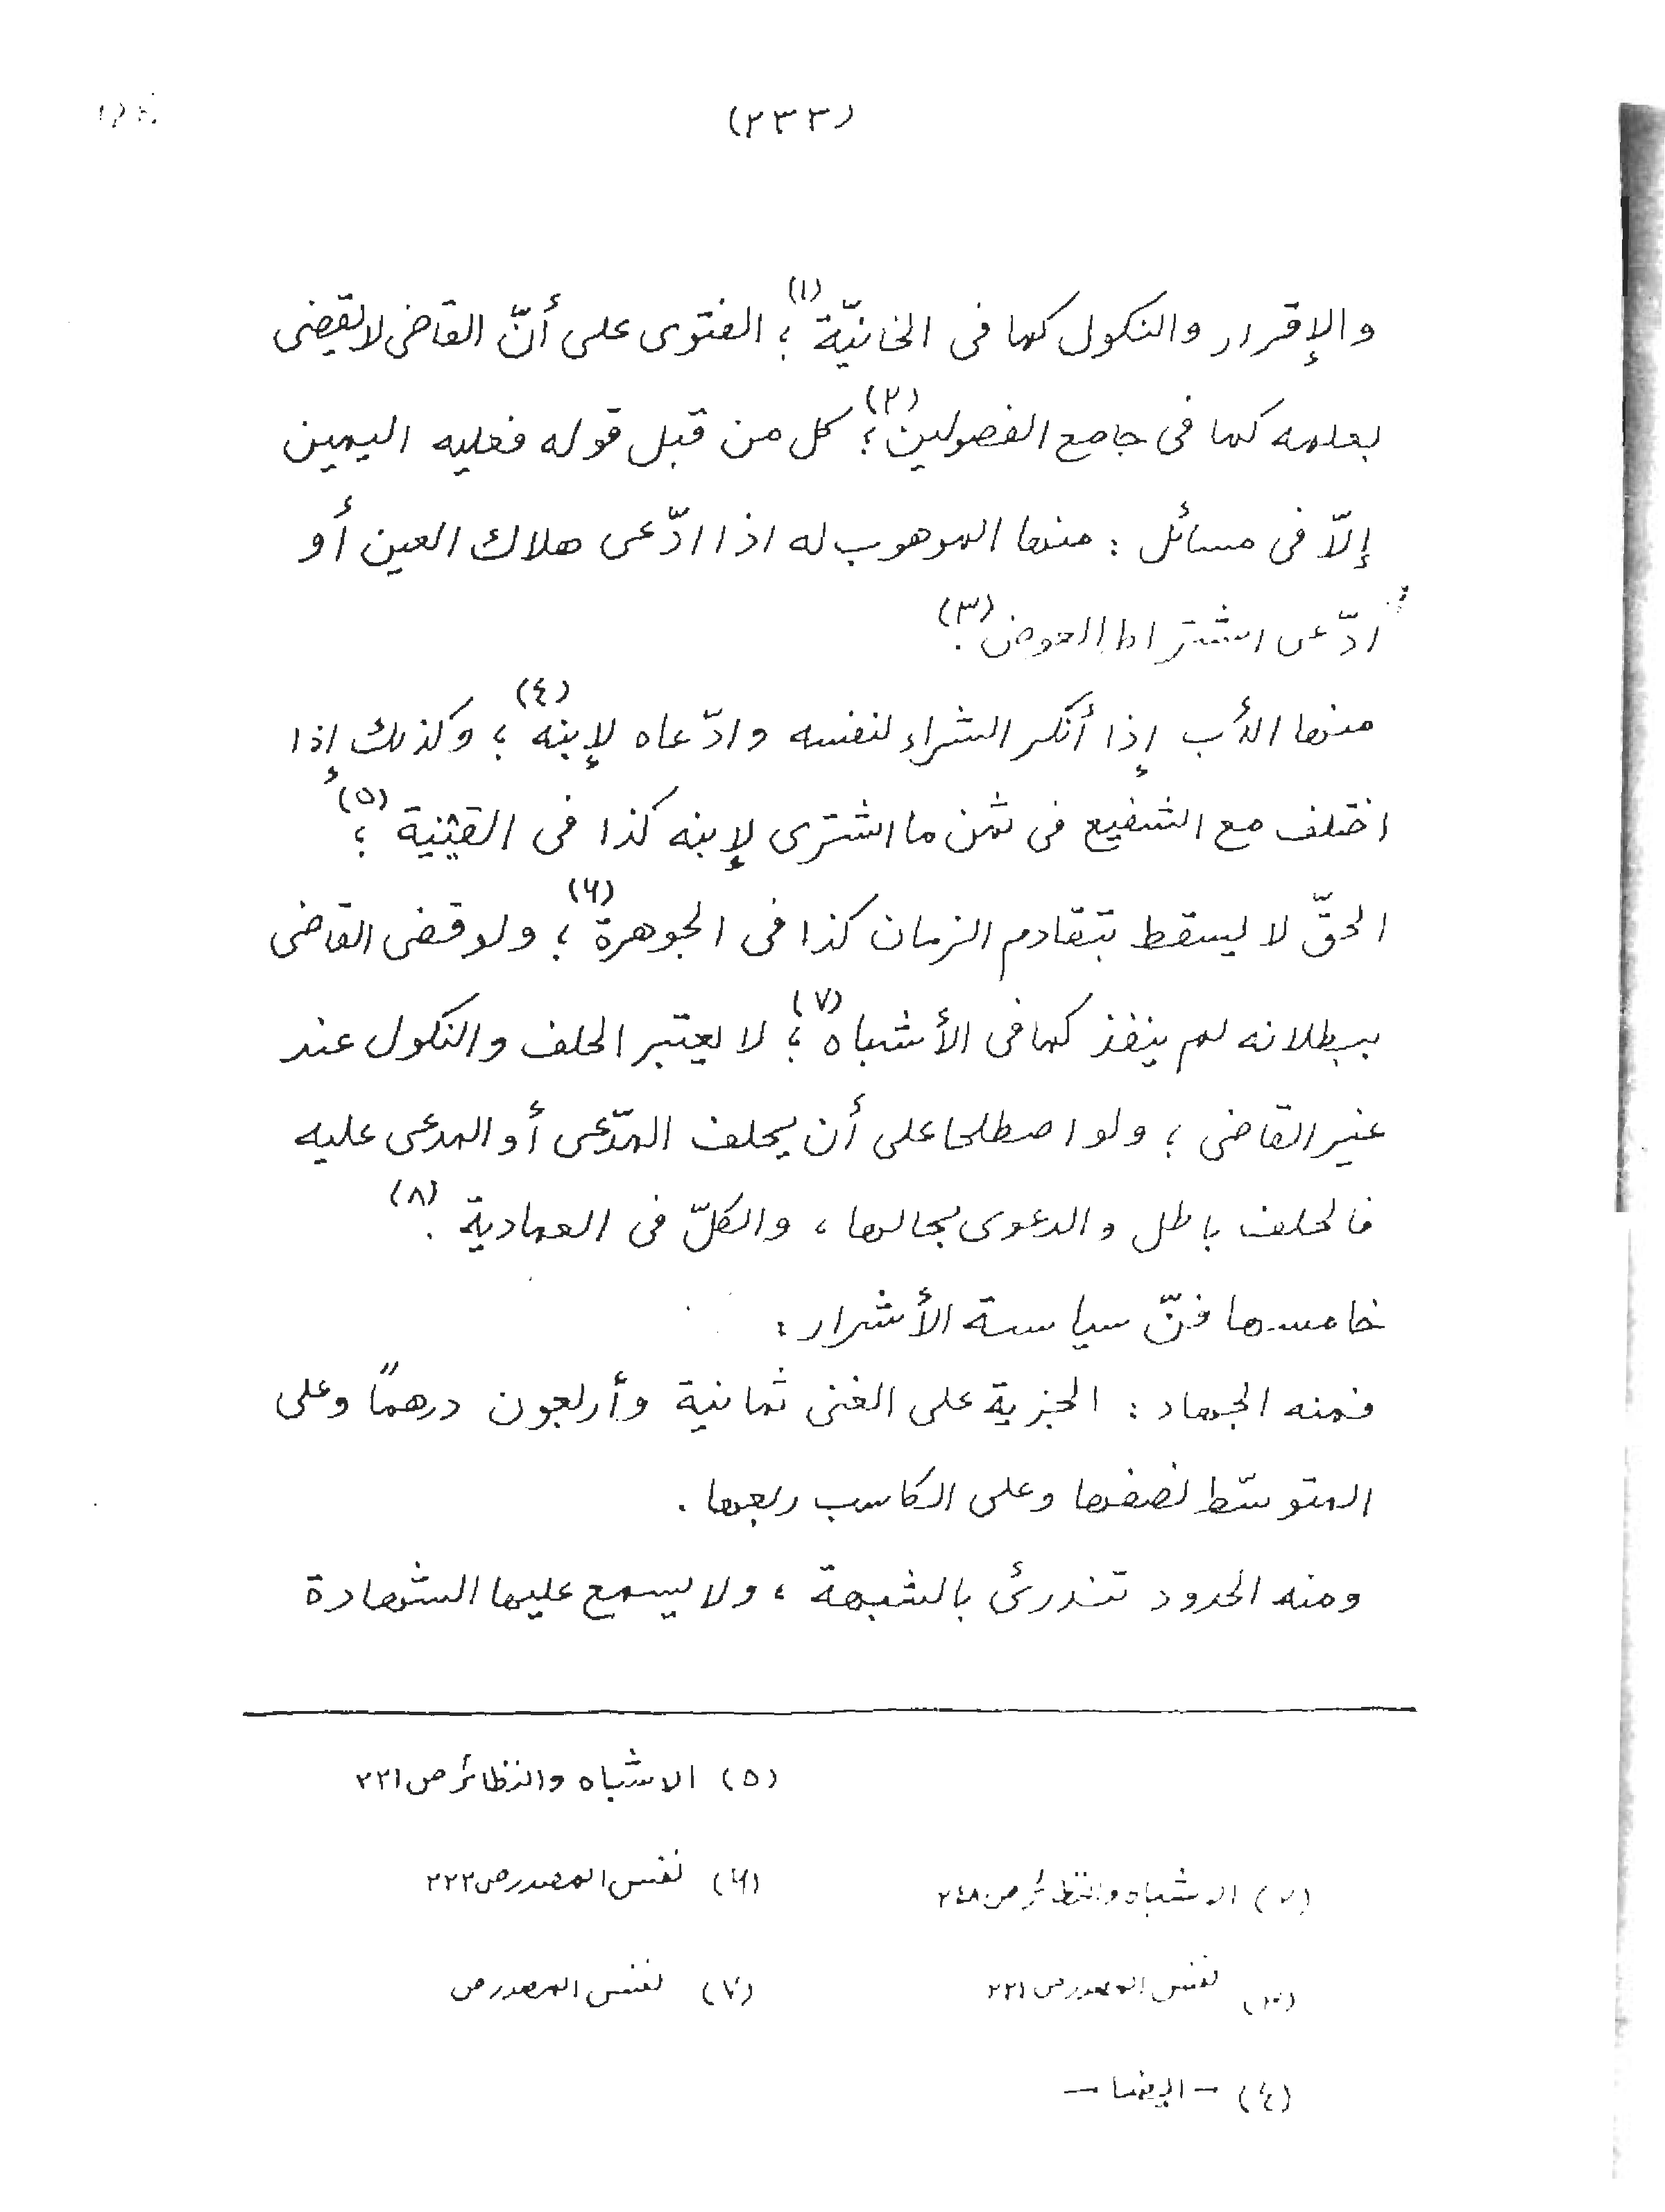 (٢٣٣)
والإقرار والنكول كما فى الخانيّة (١) ؛ الفتوى على أنّ القاضى لا يقضى
بعلمه كما فى جامع الفصولين (٢) ؛ كل من قبل قوله فعليه اليمين
إلاّ فى مسائل : منها الموهوب له اذا ادّعى هلاك العين أو
ادّعى اشتراط العوض (٣) .
منها الأب إذا أنكر الشراء لنفسه وادّعاه لإبنه (٤) ؛ وكذلك إذا
اختلف مع الشفيع فى ثمن ما اشترى لإبنه كذا فى القينية (٥) ؛
الحقّ لا يسقط بتقادم الزمان كذا فى الجوهرة (٦) ؛ ولو قضى القاضى
ببطلانه لم ينفذ كما فى الأشباه (٧) ؛ لا يعتبر الحلف والنكول عند
غير القاضى ؛ ولو اصطلحا على أن يحلف المدّعى أو المدعى عليه
فالحلف باطل والدعوى بحالها ، والكلّ فى العمادية (٨) .
خامسها فنّ سياسة الأشرار :
فمنه الجهاد : الجزية على الغنى ثمانية وأربعون درهمًا وعلى
المتوسّط نصفها وعلى الكاسب ربعها .
ومنه الحدود تندرئ بالشبهة ، ولا يسمع عليها الشهادة
(٥) الاشباه والنظائر ص ٢٢١
(٢) الاشباه والنظائر ص ٢٤٨
(٦) نفس المصدر ص ٢٢٢
(٣) نفس المصدر ص ٢٢١
(٧) نفس المصدر ص
(٤) - ايضا -